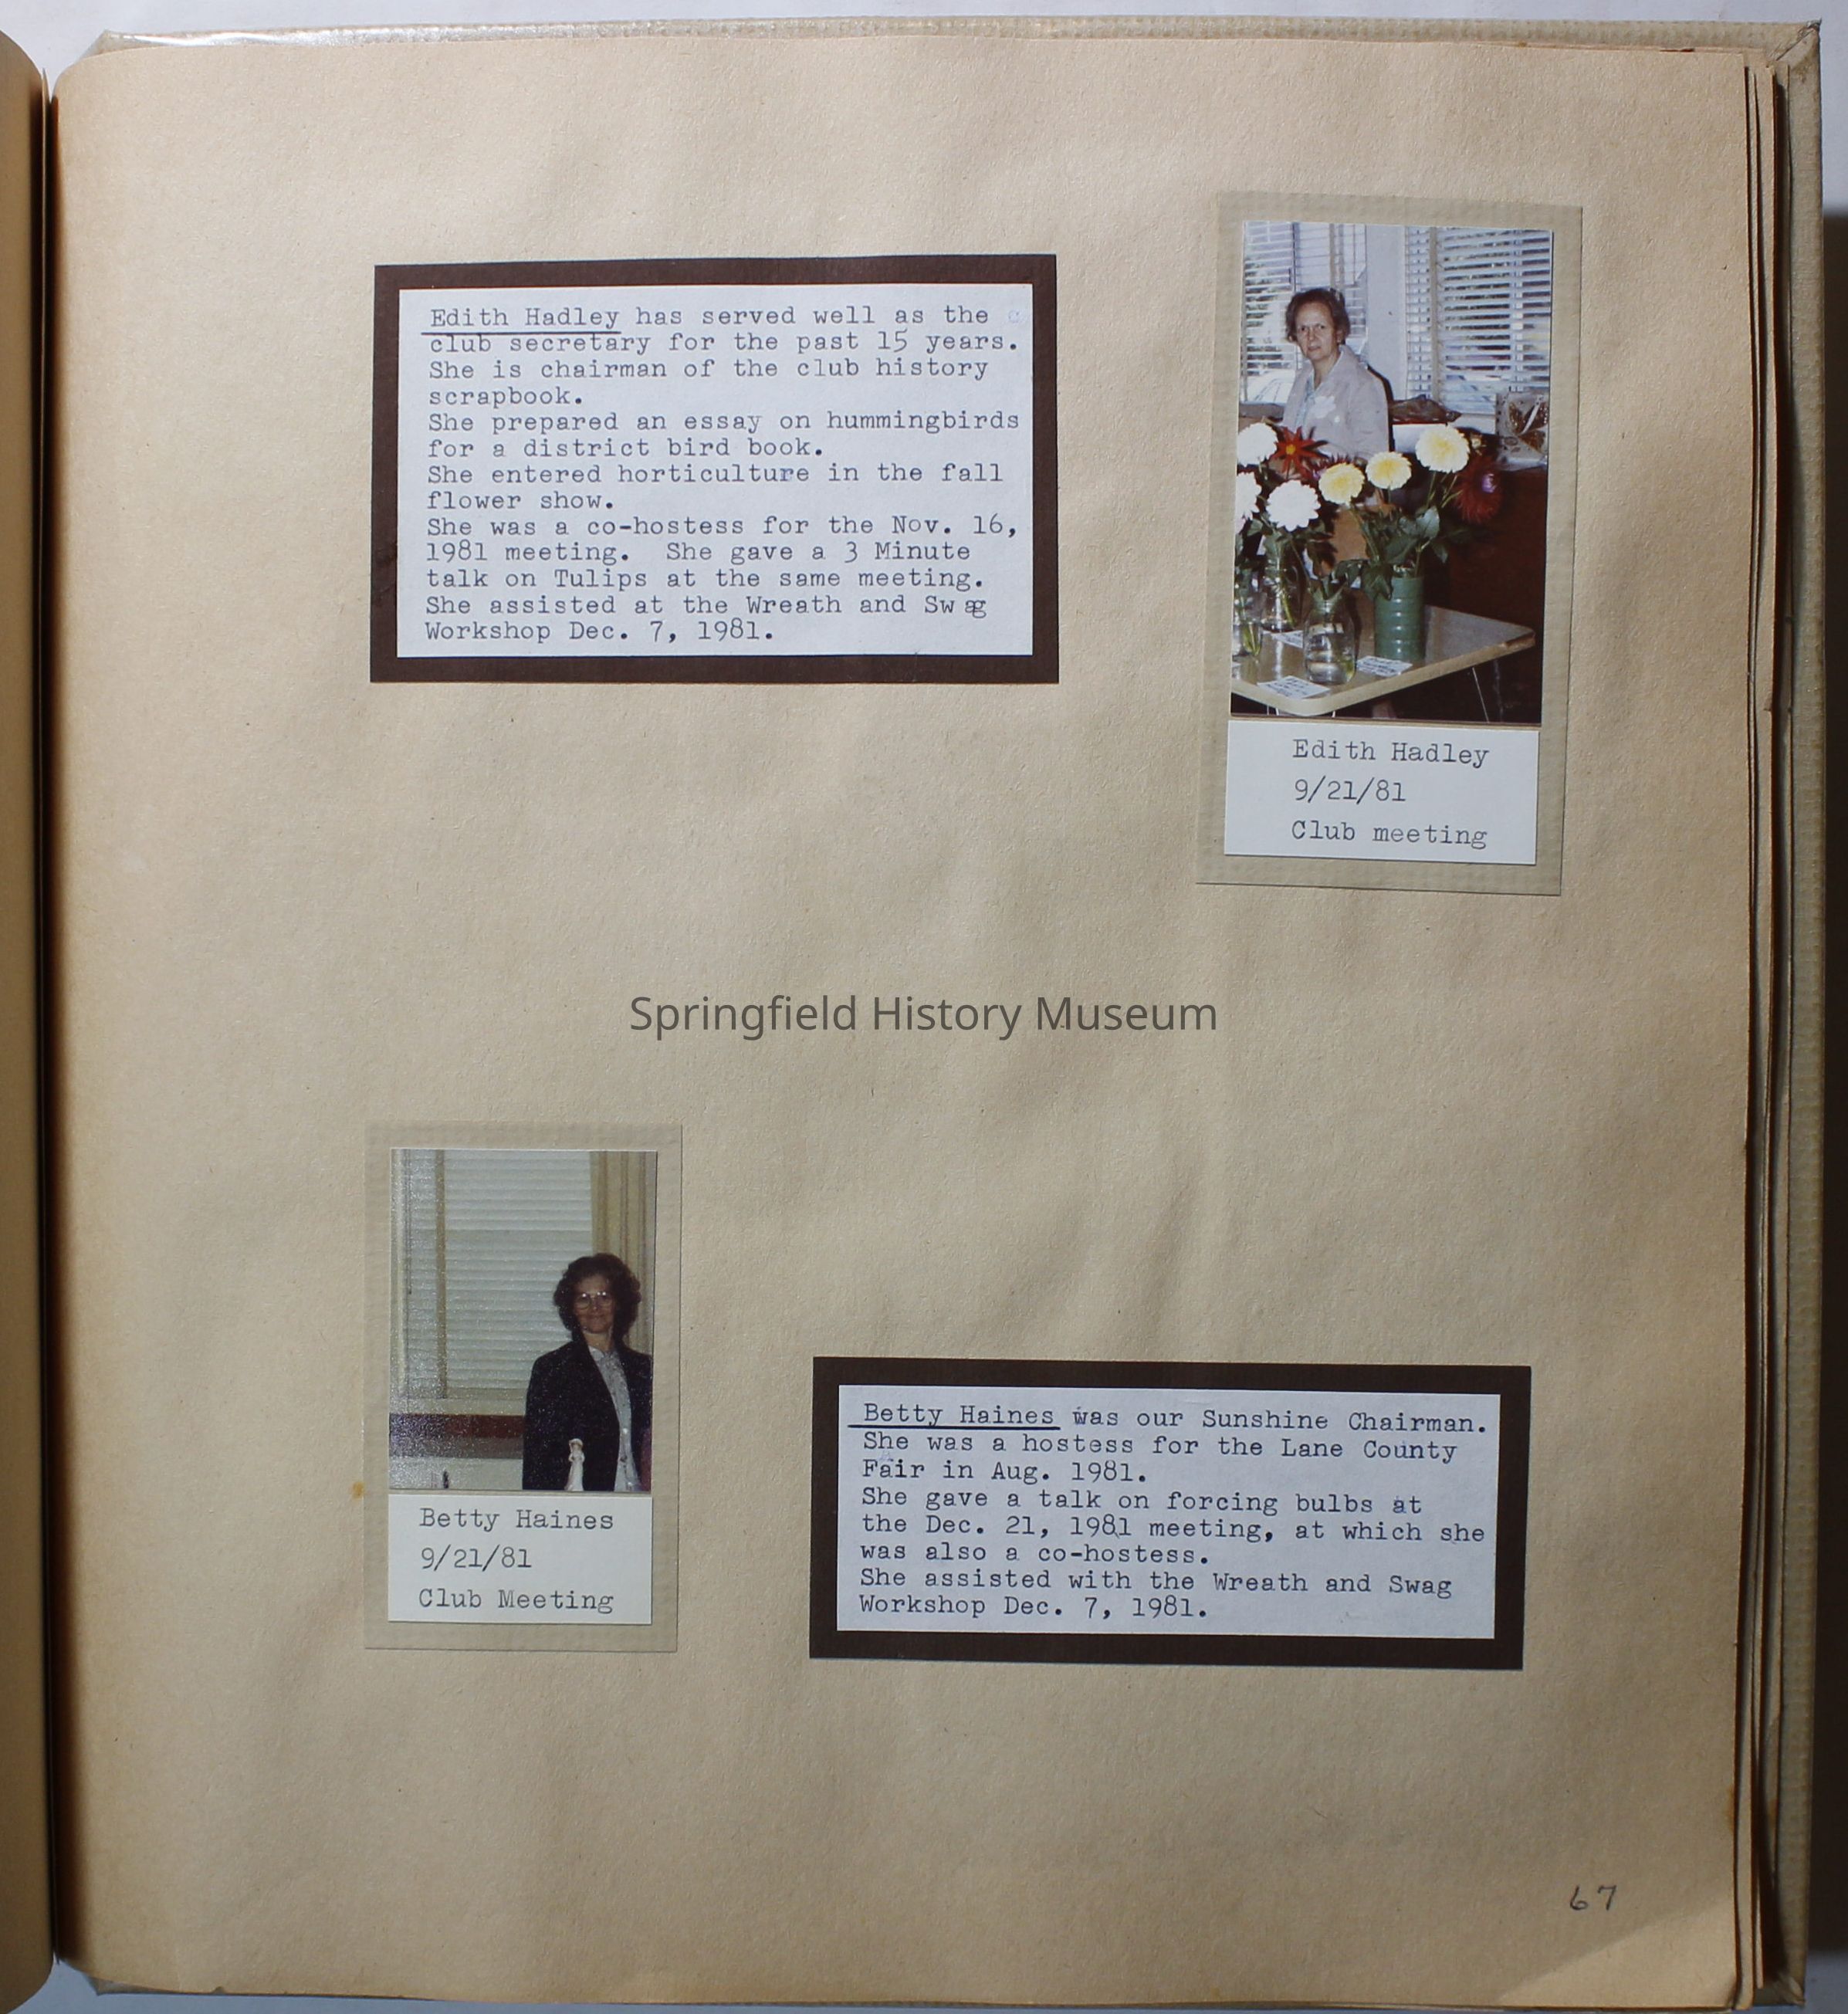 Edith Hadley has served well as the
club secretary for the past 15 years.
She is chairman of the club history
scrapbook.
She prepared an essay on hummingbirds
for a district bird book.
She entered horticulture in the fall
flower show.
She was a co-hostess for the Nov. 16,
1981 meeting. She gave a 3 Minute
talk on Tulips at the same meeting.
She assisted at the Wreath and Swag
Workshop Dec. 7, 1981.
Edith Hadley
9/21/81
Club meeting
Springfield History Museum
Betty Haines
9/21/81
Club Meeting
Betty Haines was our Sunshine Chairman.
She was a hostess for the Lane County
Fair in Aug. 1981.
She gave a talk on forcing bulbs at
the Dec. 21, 1981 meeting, at which she
was also a co-hostess.
She assisted with the Wreath and Swag
Workshop Dec. 7, 1981.
67